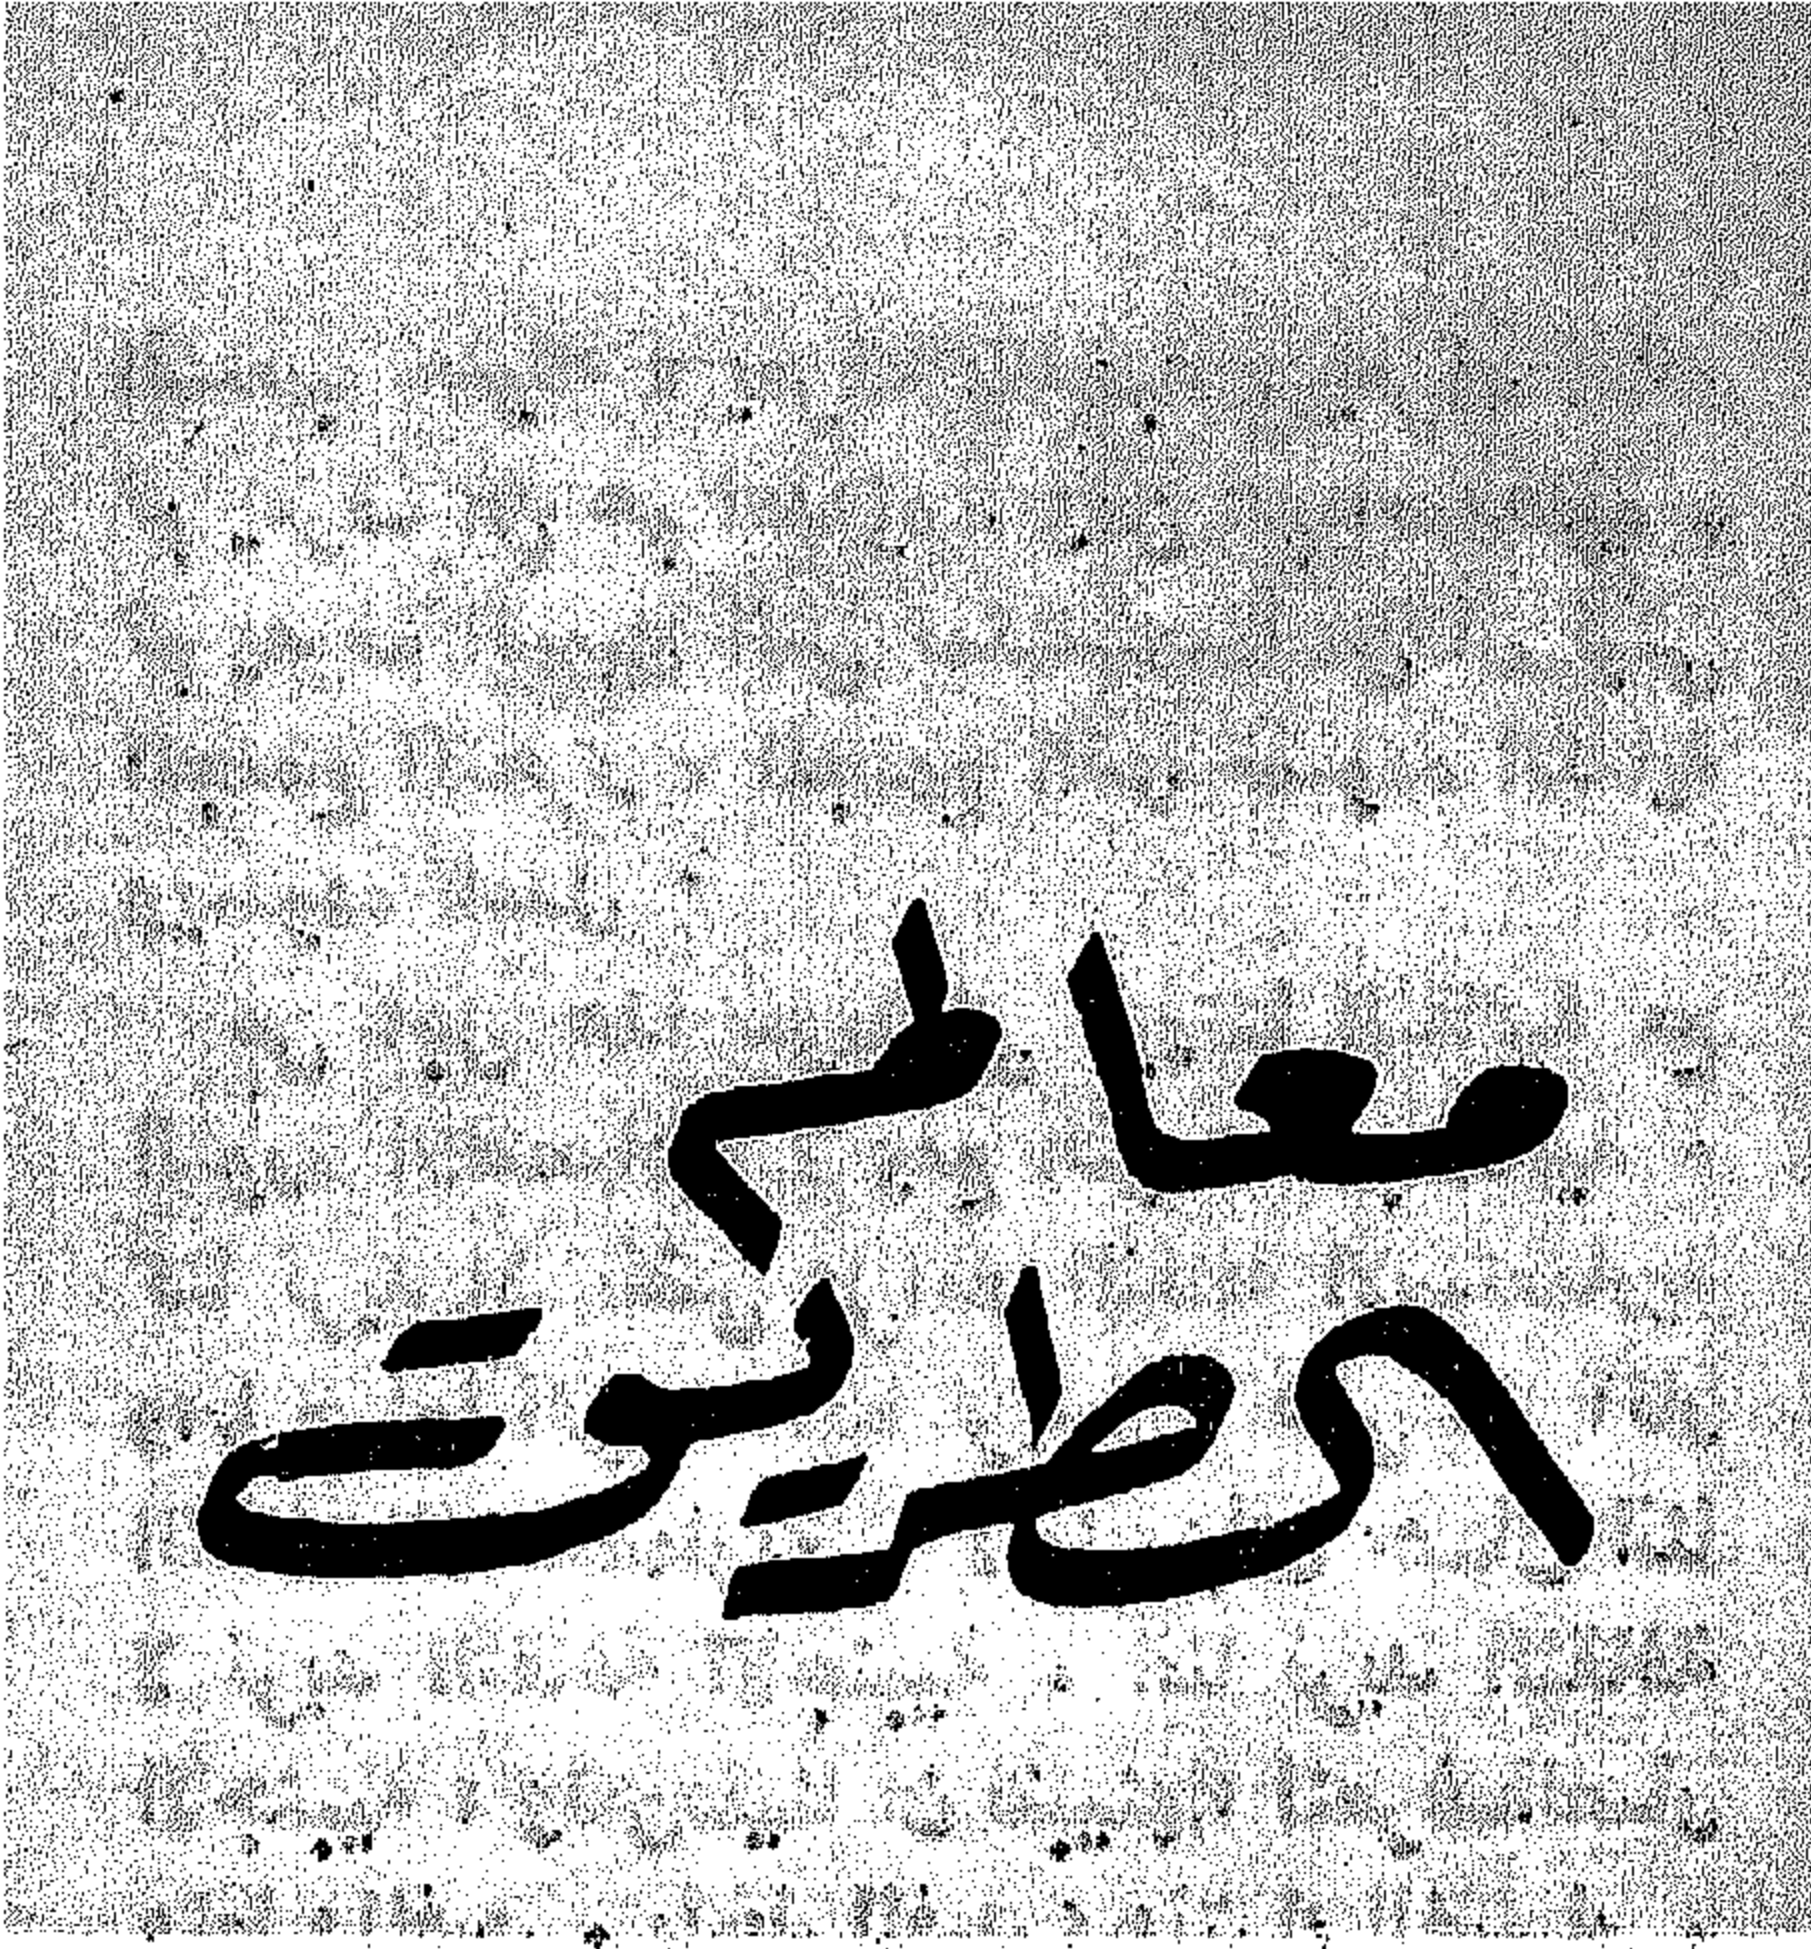 معالم
الطريق